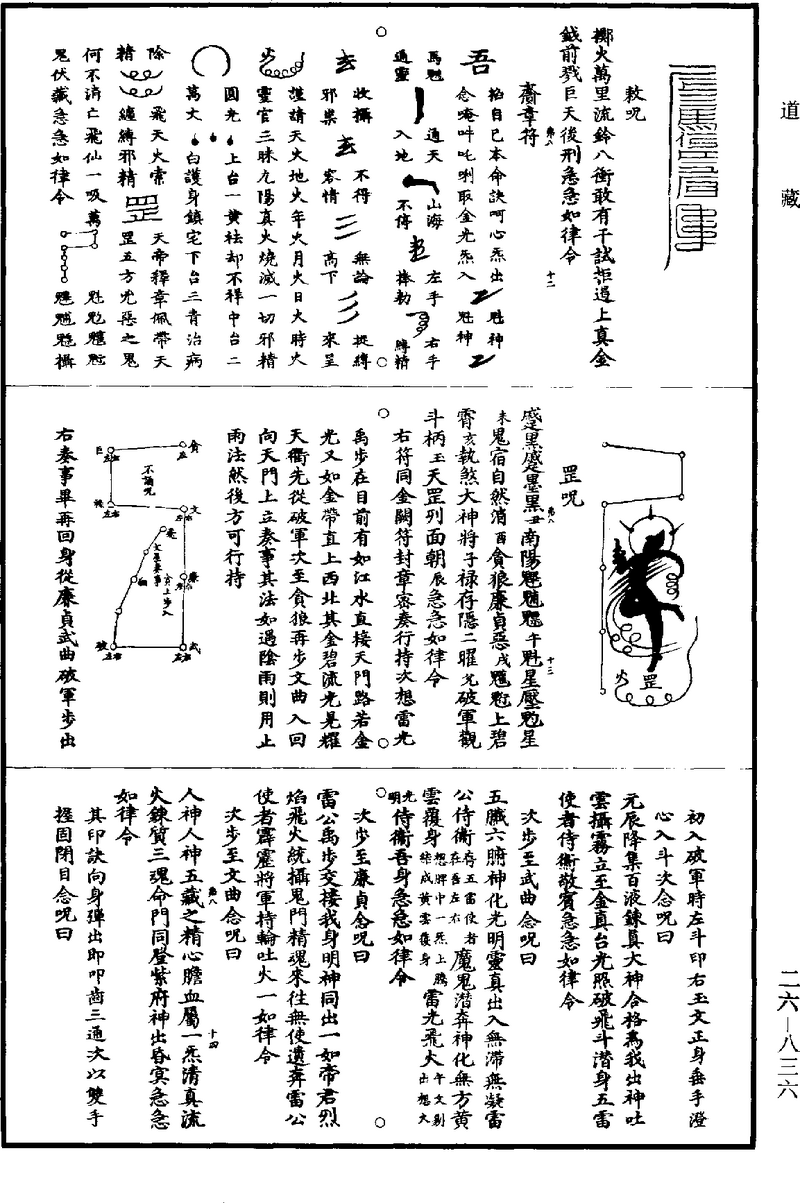 道藏
敕呪
擲火萬里流鈴八衝敢有干試拒過上真金
鉞前戮巨天後刑急急如律令
十二
齋章符
第八
吾
掐自己本命訣呵心炁出
念唵吽吒唎取金光炁入
魁神
馬魁
通靈
通天
入地
山海
不停
左手
捧勅
右手
縛精
玄
收攝
邪祟
玄
不得
容情
三
無論
高下
捉縛
來呈
火
謹請天火地火年火月火日火時火
靈官三昧九陽真火燒滅一切邪精
圓光
上台一黃祛却不祥中台二
萬丈
白護身鎮宅下台三青治病
除
精
飛天火索
纏縛邪精
罡
天帝釋章佩帶天
罡五方凶惡之鬼
何不消亡飛仙一吸萬
鬼伏藏急急如律令
罡
火
罡呪
第八
南陽
十三
未鬼宿自然消酉貪狼廉貞惡戌
上碧
霄亥執煞大神將子祿存隱二曜
破軍觀
斗柄
玉天罡列面朝辰急急如律令
右符同金闕符封章密奏行持次想雷光
禹步在目前有如江水直接天門路若金
光又如金帶直上西北其金碧流光晃耀
天衢先從破軍次至貪狼再步文曲入回
向天門上立奏事其法如遇陰雨則用止
雨法然後方可行持
貪
巨
不誦咒
祿
文
廉
武
破
右奏事畢再回身從廉貞武曲破軍步出
初入破軍時左斗印右玉文正身垂手澄
心入斗次念呪曰
元辰降集百液鍊真大神合格為我出神吐
雲攝霧立至金真台光照破飛斗潛身五雷
使者侍衛敬賓急急如律令
次步至武曲念呪曰
五臟六腑神化光明靈真出入無滯無凝雷
公侍衛
存五雷使者
在吾左右
魔鬼潛奔神化無方黃
雲覆身
想脾中一炁上騰
結成黃雲覆身
雷光飛火
午文剔
出想火
光
明
侍衛吾身急急如律令
次步至廉貞念呪曰
雷公禹步交接我身明神同出一如帝君烈
焰飛火統攝鬼門精魂來往無使遺奔雷公
使者霹靂將軍持輪吐火一如律令
次步至文曲念呪曰
第八
十四
人神人神五藏之精心膽血屬一炁清真流
火鍊質三魂命門同登紫府神出昏冥急急
如律令
其印訣向身彈出即叩齒三通次以雙手
握固閉目念呪曰
二六—八三六